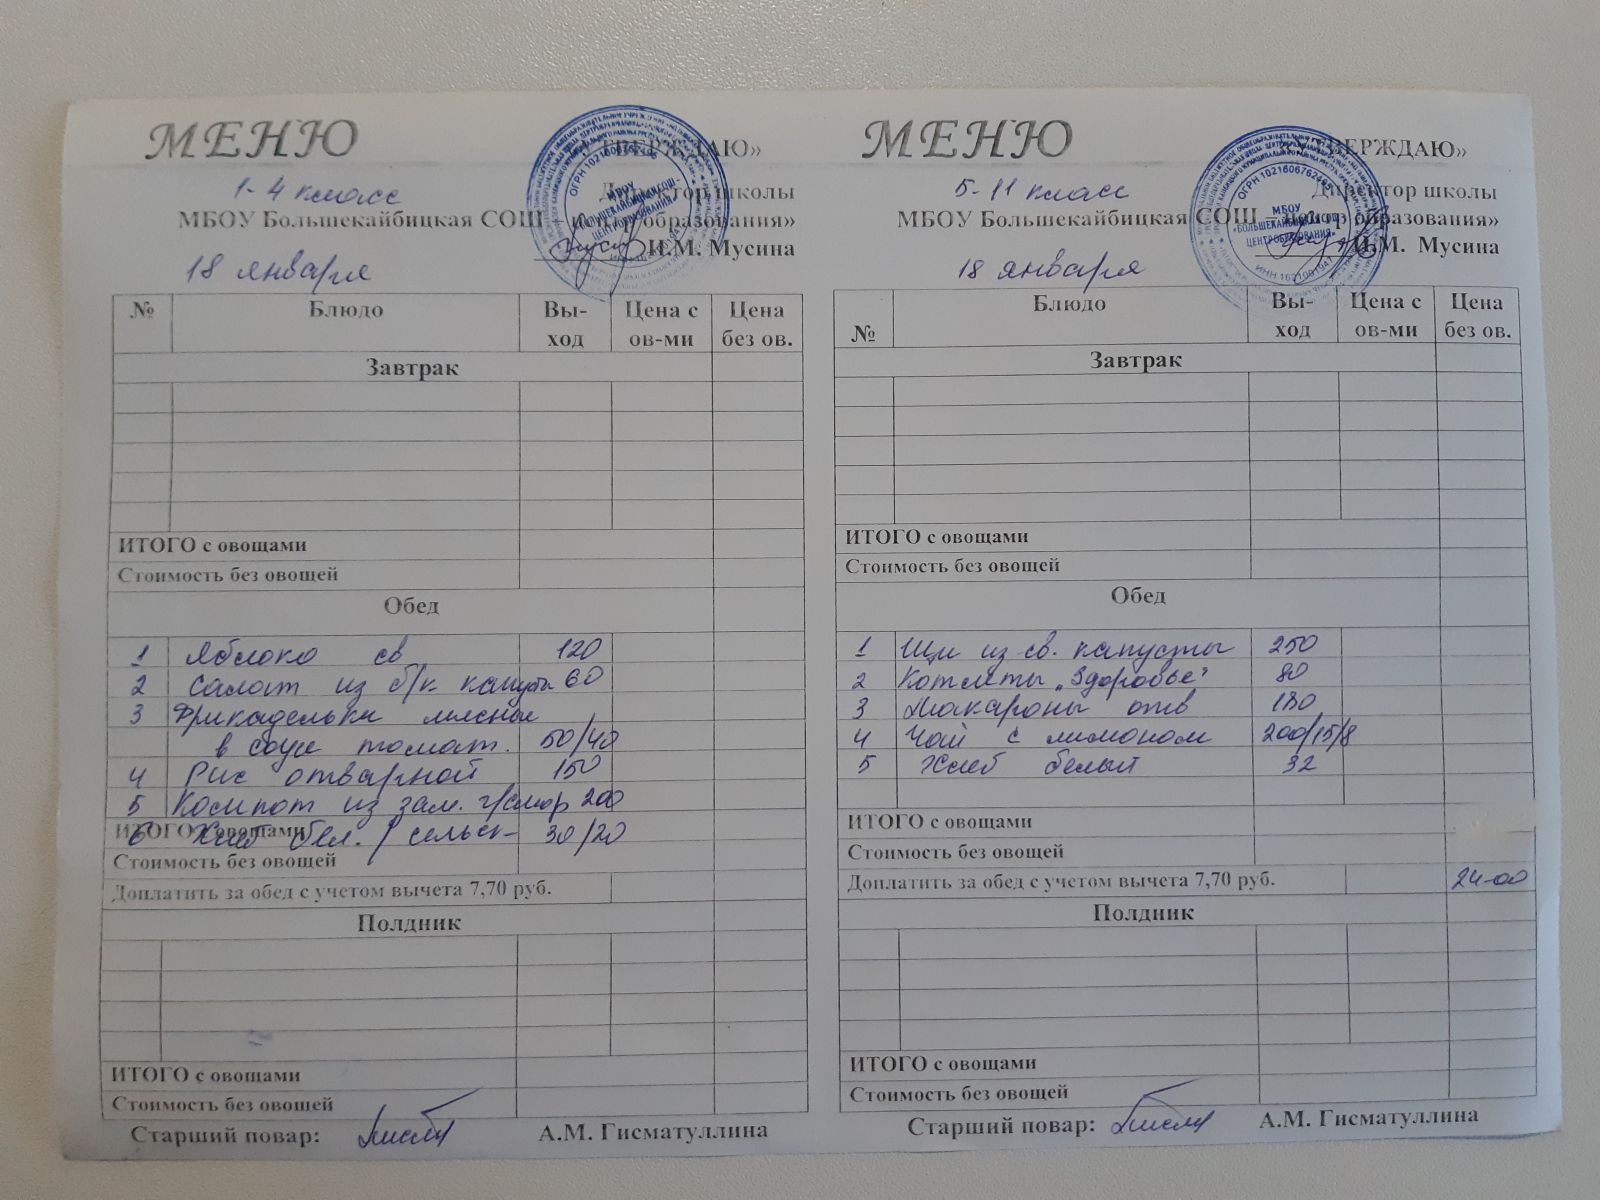 МЕНЮ
«УТВЕРЖДАЮ»
1-4 класс
Директор школы
МБОУ Большекайбицкая СОШ – центр образования»
И.М. Мусина
18 января
№ Блюдо Вы-ход Цена с ов-ми Цена без ов.
Завтрак
ИТОГО с овощами
Стоимость без овощей
Обед
1 Яблоко св 120
2 Салат из б/к капусты 60
3 Фрикадельки мясные
в соусе томат. 50/40
4 Рис отварной 150
5 Компот из зам. 200
ИТОГО с овощами
6 Хлеб бел. / сельск- 30/20
Стоимость без овощей
Доплатить за обед с учетом вычета 7,70 руб.
Полдник
ИТОГО с овощами
Стоимость без овощей
Старший повар: А.М. Гисматуллина
МЕНЮ
«УТВЕРЖДАЮ»
5-11 класс
Директор школы
МБОУ Большекайбицкая СОШ – центр образования»
И.М. Мусина
18 января
№ Блюдо Вы-ход Цена с ов-ми Цена без ов.
Завтрак
ИТОГО с овощами
Стоимость без овощей
Обед
1 Щи из св. капусты 250
2 Котлеты „Здоровье" 80
3 Макароны отв 180
4 Чай с лимоном 200/15/8
5 Хлеб белый 32
ИТОГО с овощами
Стоимость без овощей
Доплатить за обед с учетом вычета 7,70 руб. 24-00
Полдник
ИТОГО с овощами
Стоимость без овощей
Старший повар: А.М. Гисматуллина